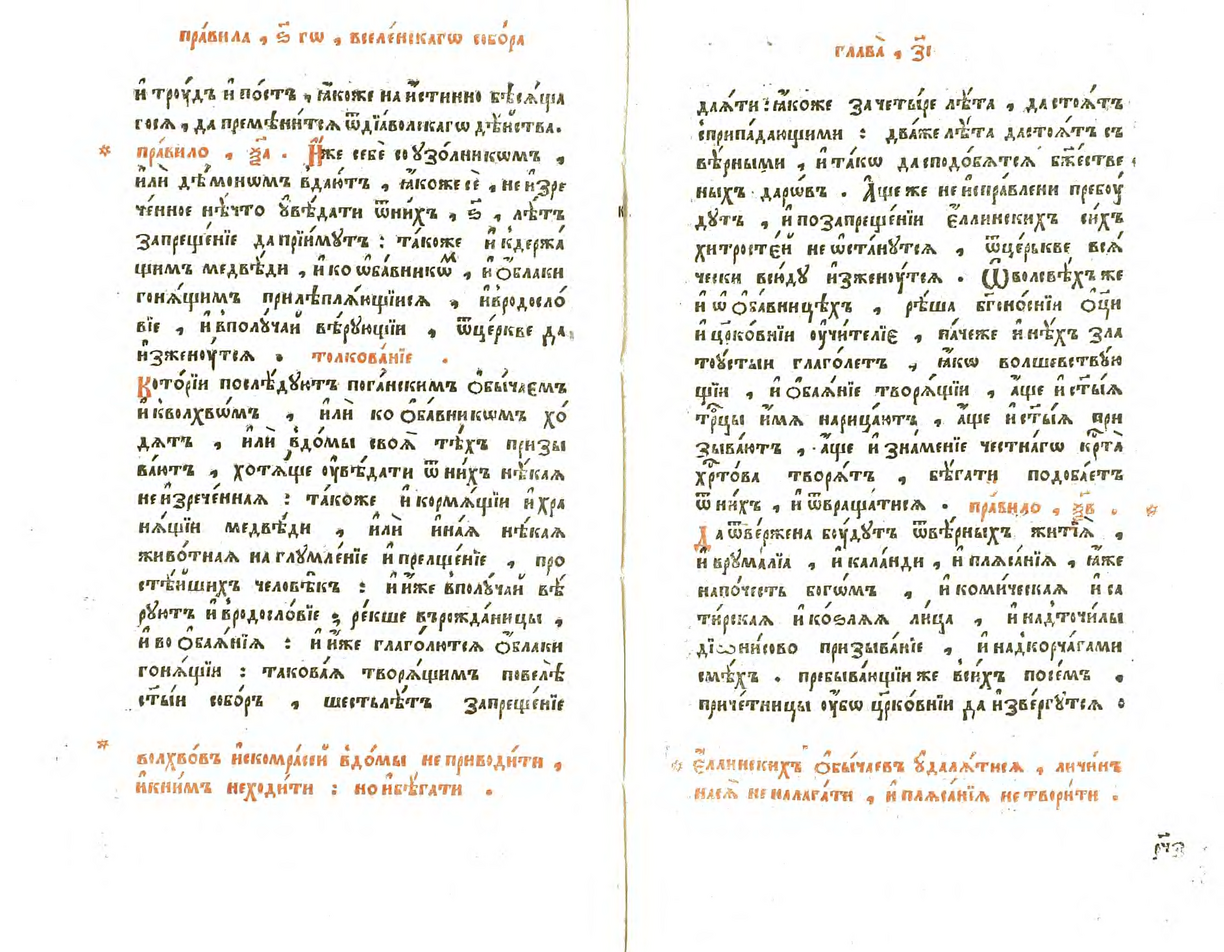 пра́вила , ѕ҃ гѡ , вселе́нскагѡ собо́ра
и҆ трꙋ́дъ и҆ по́стъ , ꙗ҆́коже на и҆́стинно бѣсѧ́ща
госѧ , да премѣни́тсѧ ѿ дїа́волскагѡ дѣ́йства .
пра́вило , ѯ҃а . И҆̀же себѐ со ᲂу҆зо́лникѡмъ ,
и҆лѝ де́монѡмъ вдаю́тъ , ꙗ҆́коже сѐ , не и҆зре
че́нное нѣ́что ᲂу҆вѣ́дати ѿ ни́хъ , ѕ҃ , лѣ́тъ
запреще́нїе да прїи́мꙋтъ : та́коже и҆ к держа́
щимъ медвѣ́ди , и҆ ко ѡ҆ба́вникѡм , и҆ ѻ҆́блаки
гонѧ́щимъ прилѣплѧ́ющїисѧ , и҆ в родосло́
вїе , и҆ в полꙋча́й вѣ́рꙋющїи , ѿ це́ркве да
и҆зженꙋ́тсѧ . толкова́нїе .
Кото́рїи послѣ́дꙋютъ пога́нскимъ ѻ҆бы́чаемъ
и҆ к волхвѡ́мъ , и҆лѝ ко ѻ҆ба́вникѡмъ хо́
дѧтъ , и҆лѝ в до́мы своѧ̀ тѣ́хъ призы
ва́ютъ , хотѧ́ще ᲂу҆вѣ́дати ѿ ни́хъ нѣ́каѧ
не и҆зрече́ннаѧ : та́коже и҆ кормѧ́щїи и҆ хра
нѧ́щїи медвѣ́ди , и҆лѝ и҆на́ѧ нѣ́каѧ
живо́тнаѧ на глꙋмле́нїе и҆ прельще́нїе , про
стѣ́йшихъ человѣ́къ : и҆ и҆́же в полꙋча́й вѣ́
рꙋютъ и҆ в родосло́вїе ; ре́кше в рожда́ницы ,
и҆ во ѻ҆баѧ́нїѧ : и҆ и҆́же глаго́лютсѧ ѻ҆́блаки
гонѧ́щїи : такова́ѧ творѧ́щимъ повелѣ̀
ст҃ы́и собо́ръ , шестьлѣ́тъ запреще́нїе
волхво́въ и҆ скомра́сей в до́мы не приводи́ти ,
и҆ к ни́мъ не ходи́ти : но и҆ бѣ́гати .
глава̀ , з҃і
даѧ́ти : ꙗ҆́коже за четы́ре лѣ́та , да стоѧ́тъ
с припа́дающими : два́же лѣ́та да стоѧ́тъ съ
вѣ́рными , и҆ та́кѡ да сподо́бѧтсѧ бж҃е́стве
ныхъ дарѡ́въ . А҆́ще же не и҆спра́влени пребꙋ́
дꙋтъ , и҆ по запреще́нїи є҆́ллинскихъ си́хъ
хи́тростей не ѡ҆ста́нꙋтсѧ , ѿ це́рькве всѧ́
чески всю́дꙋ и҆зженꙋ́тсѧ . Ѡ҆ волсвѣ́хъ же
и҆ ѡ҆ ѻ҆ба́вницѣхъ , рѣ́ша бг҃оно́снїи ѻ҆ц҃ы
и҆ цр҃ко́внїи ᲂу҆чи́теліе , па́че же и҆ нѣ́хъ зла
тоꙋ́стыи глаго́летъ , ꙗ҆́кѡ волшевствꙋ́ю
щїи , и҆ ѻ҆баѧ́нїе творѧ́щїи , а҆́ще и҆ ст҃ы́ѧ
тр҃цы и҆́мѧ нарица́ютъ , а҆́ще и҆ ст҃ы́ѧ при
зыва́ютъ , а҆́ще и҆ зна́менїе честна́гѡ кр҃та̀
хр҃то́ва творѧ́тъ , бѣ́гати подоба́етъ
ѿ ни́хъ , и҆ ѿвраща́тисѧ . пра́вило , ѯ҃в .
Да ѿве́ржена бꙋ́дꙋтъ ѿ вѣ́рныхъ житїѧ̀ ,
и҆ врꙋма́лїа , и҆ кала́нди , и҆ плѧса́нїѧ , ꙗ҆́же
на по́честь бого́мъ , и҆ коми́ческаѧ и҆ са
ти́рскаѧ и҆ ко́ѕлаѧ ли́ца , и҆ над точи́лы
дїѡни́сово призыва́нїе , и҆ над корча́гами
смѣ́хъ . пребыва́ющїи же в си́хъ посе́мъ .
приче́тницы ᲂу҆́бѡ цр҃ко́внїи да и҆зве́ргꙋтсѧ :
є҆́ллинскихъ ѻ҆бы́чаевъ ᲂу҆далѧ́тисѧ , личи́нъ
на сѧ̀ не налага́ти , и҆ плѧса́нїѧ не твори́ти .
рч҃з